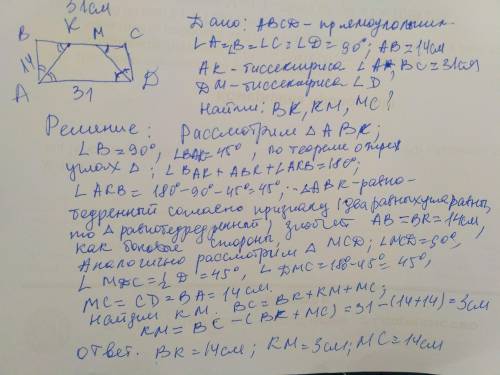 31см
B K M C
14
A 31 D
Дано: ABCD - прямоугольник
∠A=∠B=∠C=∠D=90°; AB=14см
AK - биссектриса ∠A; BC=31см
DM - биссектриса ∠D
Найти: BK, KM, MC?
Решение: Рассмотрим △ABK;
∠B=90°, ∠BAK=45°, по теореме о трёх
углах △; ∠BAK+ABK+∠AKB=180°;
∠AKB=180°-90°-45°=45°, △ABK-равно-
бедренный согласно признаку (два равных угла равны,
то △ равнобедренный), значит AB=BK=14см,
как боковые стороны.
Аналогично рассмотрим △ MCD; ∠MCD=90°,
∠MDC=½∠D=45°, ∠DMC=180-45°=45°,
MC=CD=BA=14см.
Найдём KM. BC=BK+KM+MC;
KM=BC-(BK+MC)=31-(14+14)=3см
Ответ. BK=14см; KM=3см; MC=14см